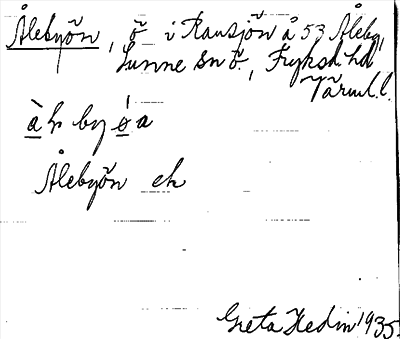 Ålebyön, ö i Ransjön å 53 Åleby,
Sunne sn ö., Fryksd. hd
Värml. l.
Ålebyön ek
Greta Hedin 1935